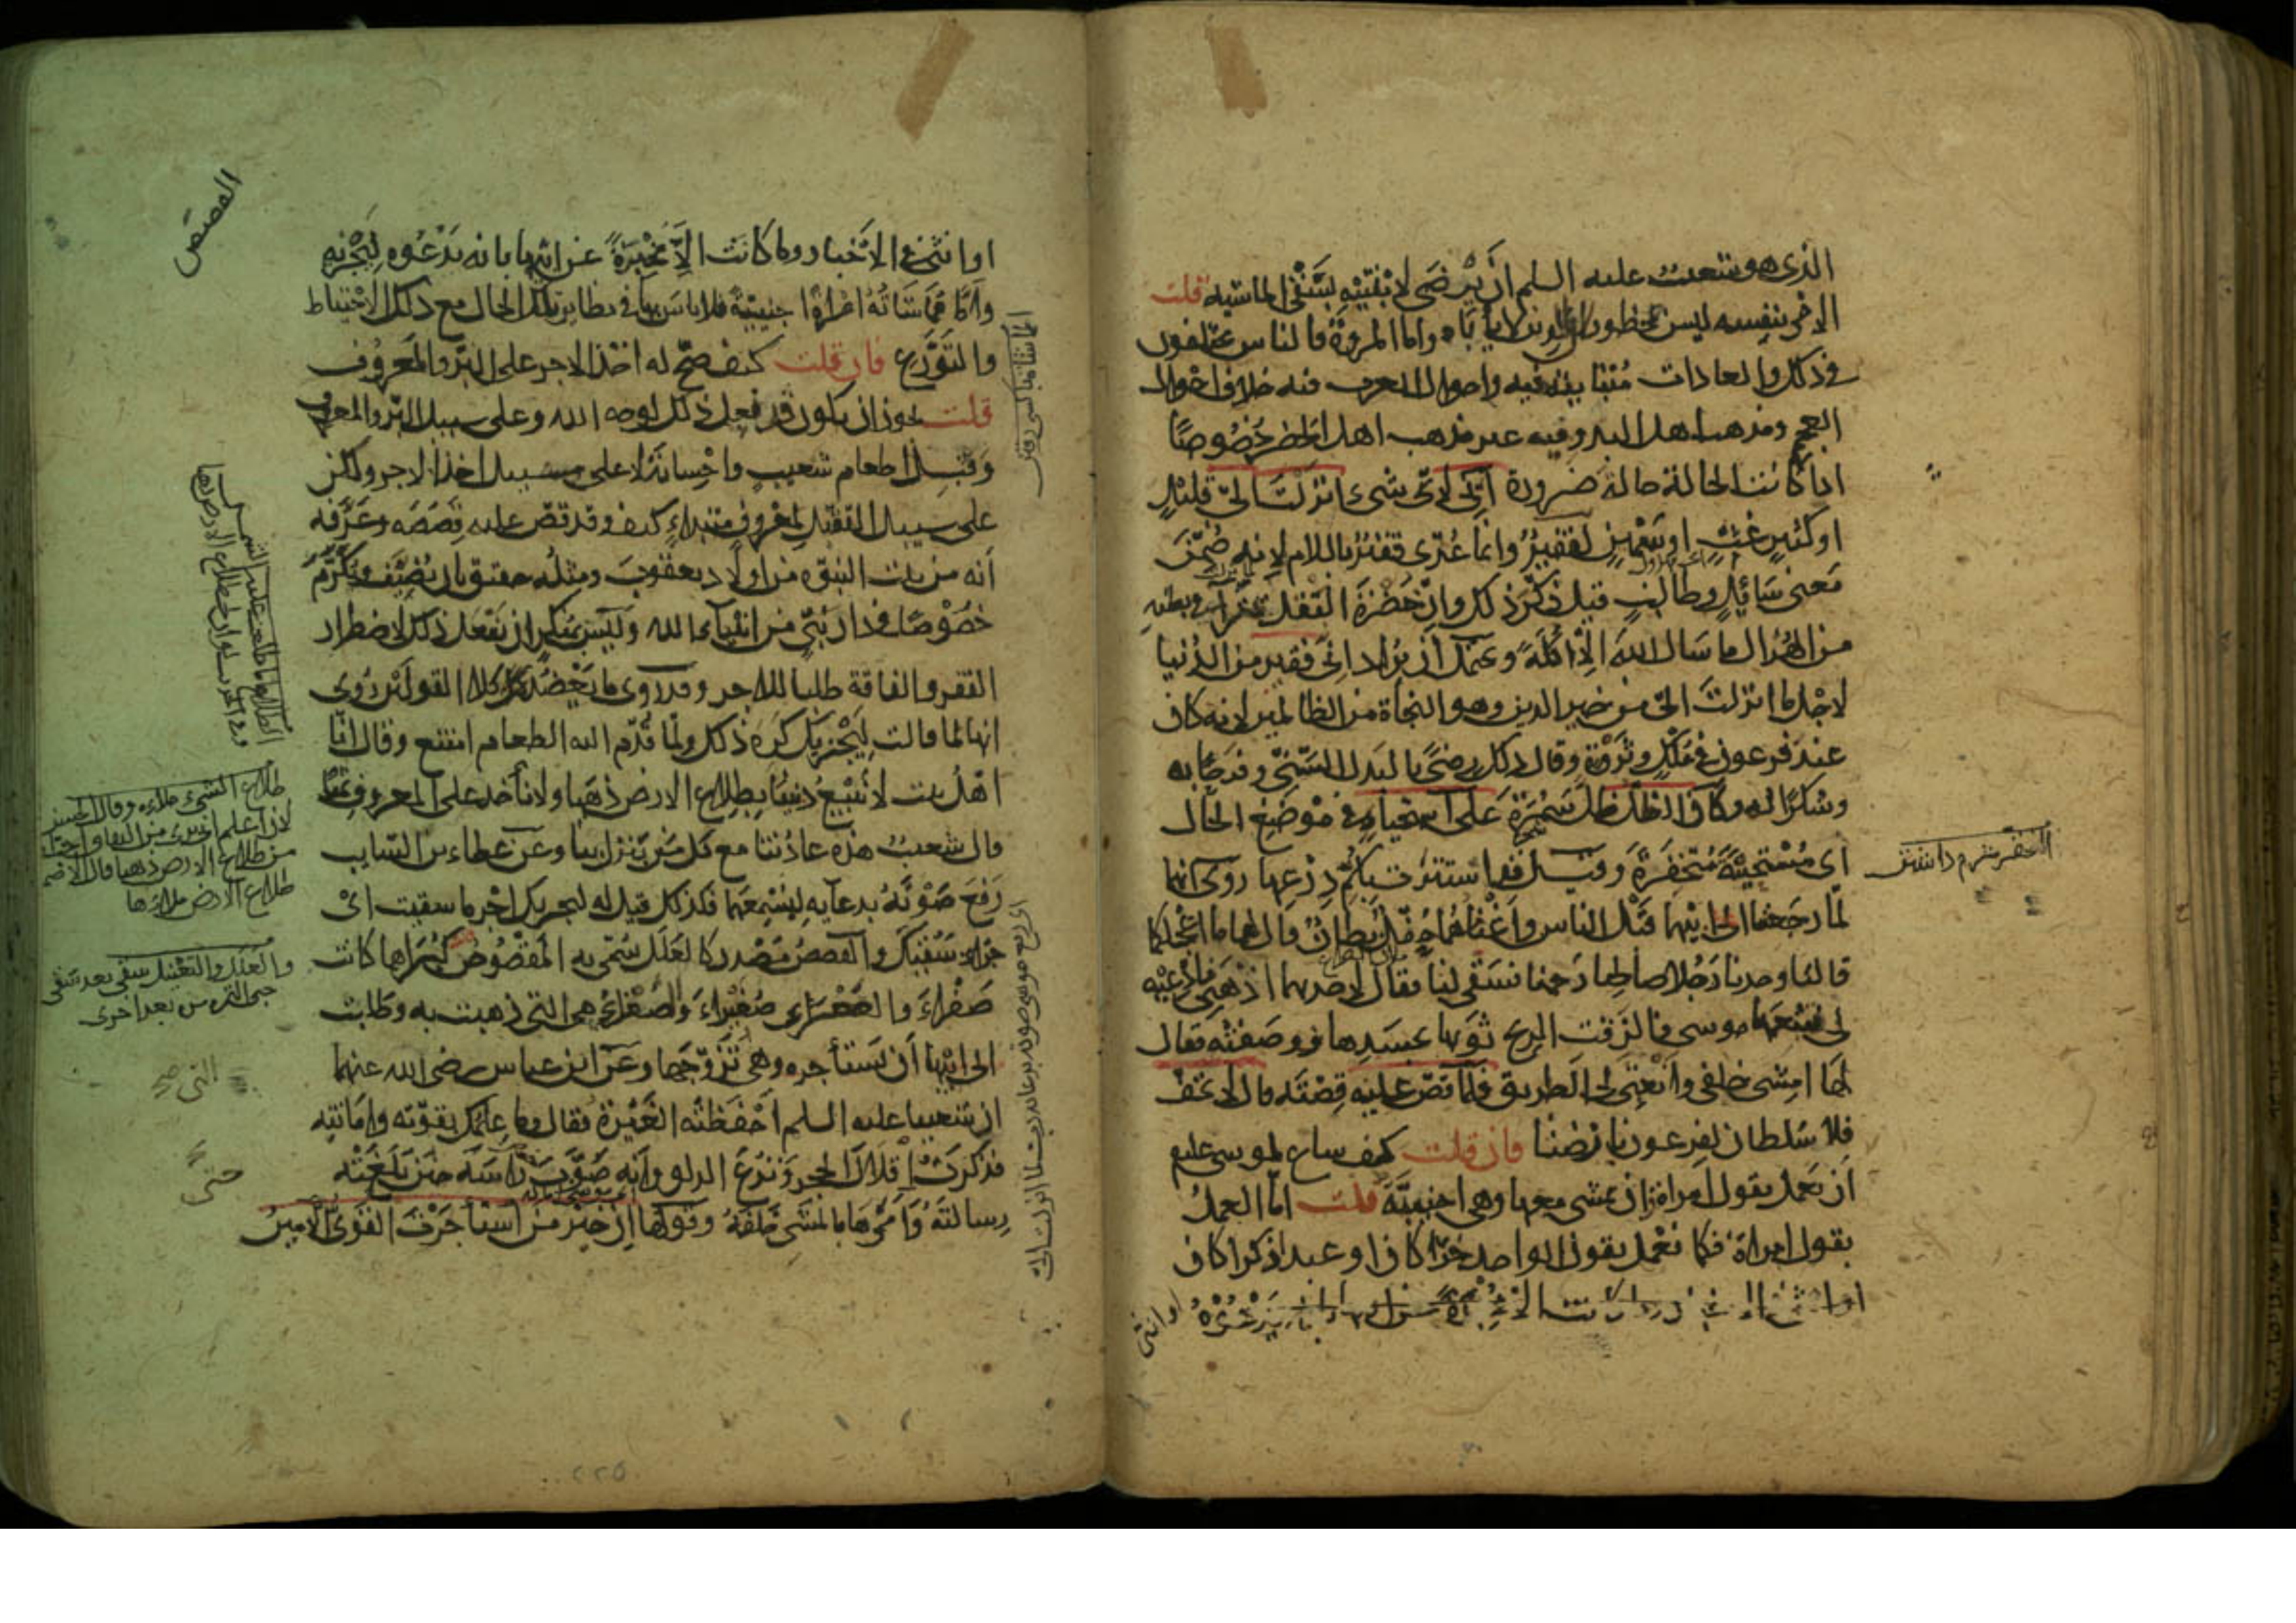 الذى هو شعيب عليه السلم ان يرضى لابنتيه بسقى الماشيه قلت
الامر فى نفسه ليس بمحظور فالدين لا يأباه واما المروة فالناس مختلفون
فى ذلك والعادات متباينة فيه واحوال العرب فيه خلاف احوال
العجم ومذهب اهل البدو فيه غير مذهب اهل الحضر خصوصا
اذا كانت الحالة حالة ضرورة انى لاى شىء انزلت الى قليل
او كثير غث او سمين لفقير وانما عدى فقير باللام لانه ضمن
معنى سائل وطالب قيل ذكر ذلك وان خضرة البقل يتراءى فى بطنه
من الهزال ما سال الله الا اكلة ويحتمل ان يراد انى فقير من الدنيا
لاجل ما انزلت الى من خير الدين وهو النجاة من الظالمين لانه كان
عند فرعون فى ملك وثروة وقال ذلك رضى بالبدل السنى وفرحا به
وشكرا له وكان الظل ظل سمرة على استحياء فى موضع الحال
اى مستحيية متخفرة وقيل قد استترت بكم درعها روى انهما
لما رجعتا الى ابيهما قبل الناس واغنامهما حفل بطان قال لهما ما اعجلكما
قالتا وجدنا رجلا صالحا رحمنا فسقى لنا فقال لاحديهما اذهبى فادعيه
لى فتبعها موسى فالزقت الريح ثوبها بجسدها فوصفته فقال
لها امشى خلفى وانعتى لى الطريق فلما قص عليه قصته قال لا تخف
فلا سلطان لفرعون بارضنا فان قلت كيف ساغ لموسى عليه
ان يعمل بقول امراة وان يمشى معها وهى اجنبية قلت اما العمل
بقول امراة فكما نعمل بقول الواحد حرا كان او عبدا ذكرا كان
او انثى
او انثى فى الاخبار وما كانت الا مخبرة عن ابيها بانه يدعوه ليجزيه
واما مماشاته امراة اجنبية فلا باس بها فى نظاير تلك الحال مع ذلك الاحتياط
والتورع فان قلت كيف صح له اخذ الاجر على البر والمعروف
قلت يجوز ان يكون قد فعل ذلك لوجه الله وعلى سبيل البر والمعروف
وقبل اطعام شعيب واحسانه لا على سبيل اخذ الاجر ولكن
على سبيل التقبل لمعروف مبتداء كيف وقد قص عليه قصصه وعرفه
انه من بيت النبوة من اولاد يعقوب ومثله حقيق بان يضيف ويكرم
خصوصا فى دار نبى من انبياء الله وليس بمنكر ان يفعل ذلك لاضطرار
الفقر والفاقة طلبا للاجر وقد روى ما يعضد كلا القولين روى
انها لما قالت ليجزيك كره ذلك ولما قدم اليه الطعام امتنع وقال انا
اهل بيت لا نبيع ديننا بطلاع الارض ذهبا ولا ناخذ على المعروف ثمنا
قال شعيب هذه عادتنا مع كل من ينزل بنا وعن عطاء بن السايب
رفع صوته بدعايه ليسمعهما فلذلك قيل له ليجزيك اجر ما سقيت اى
جزاء سقيك والقصص مصدر كالعلل سمى به المقصوص كبراهما كانت
صفراء والصغرى صفيراء وصفراء هى التى ذهبت به وطلبت
الى ابيها ان يستأجره وهى تزوجها وعن ابن عباس رضى الله عنهما
ان شعيبا عليه السلم احفظته الغيرة فقال وما علمك بقوته وامانته
فذكرت اقلال الحجر ونزع الدلو وانه صوب راسه حين بلغته
رسالته وامرها بالمشى خلفه وقولها ان خير من استأجرت القوى الامين
القصص
طلاع الشىء ملاءه وقال الحسن
لان اعلم انى برىء من النفاق احب
من طلاع الارض ذهبا قال الاصمعى
طلاع الارض ملاؤها
والعلل والتعليل سقى بعد سقى
جنى الثمرة مرة بعد اخرى